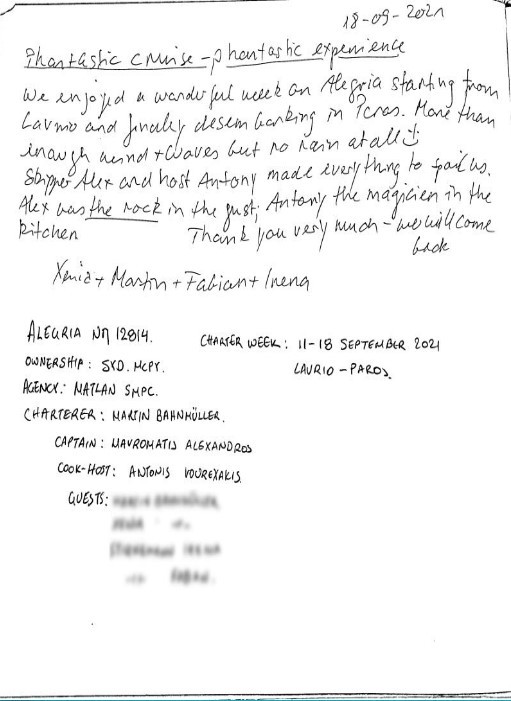 18-09-2021
Phantastic cruise - phantastic experience
We enjoyed a wonderful week on Alegria starting from
Lavrio and finaly desembarking in Paros. More than
enough wind + waves but no rain at all
Skipper Alex and host Antony made everything to us.
Alex was the rock in the gust; Antony the magicien in the
kitchen Thank you very much - we will come
back
Xenia + Martin + Fabian + Irena
ALEGRIA ΝΠ 12814. CHARTER WEEK: 11-18 SEPTEMBER 2021
OWNERSHIP: SYD. MCPY. LAVRIO - PAROS.
AGENCY: MATLAN SMPC.
CHARTERER: MARTIN BAHNMÜLLER.
CAPTAIN: MAVROMATIS ALEXANDROS
COOK-HOST: ANTONIS VOUREXAKIS
GUESTS: